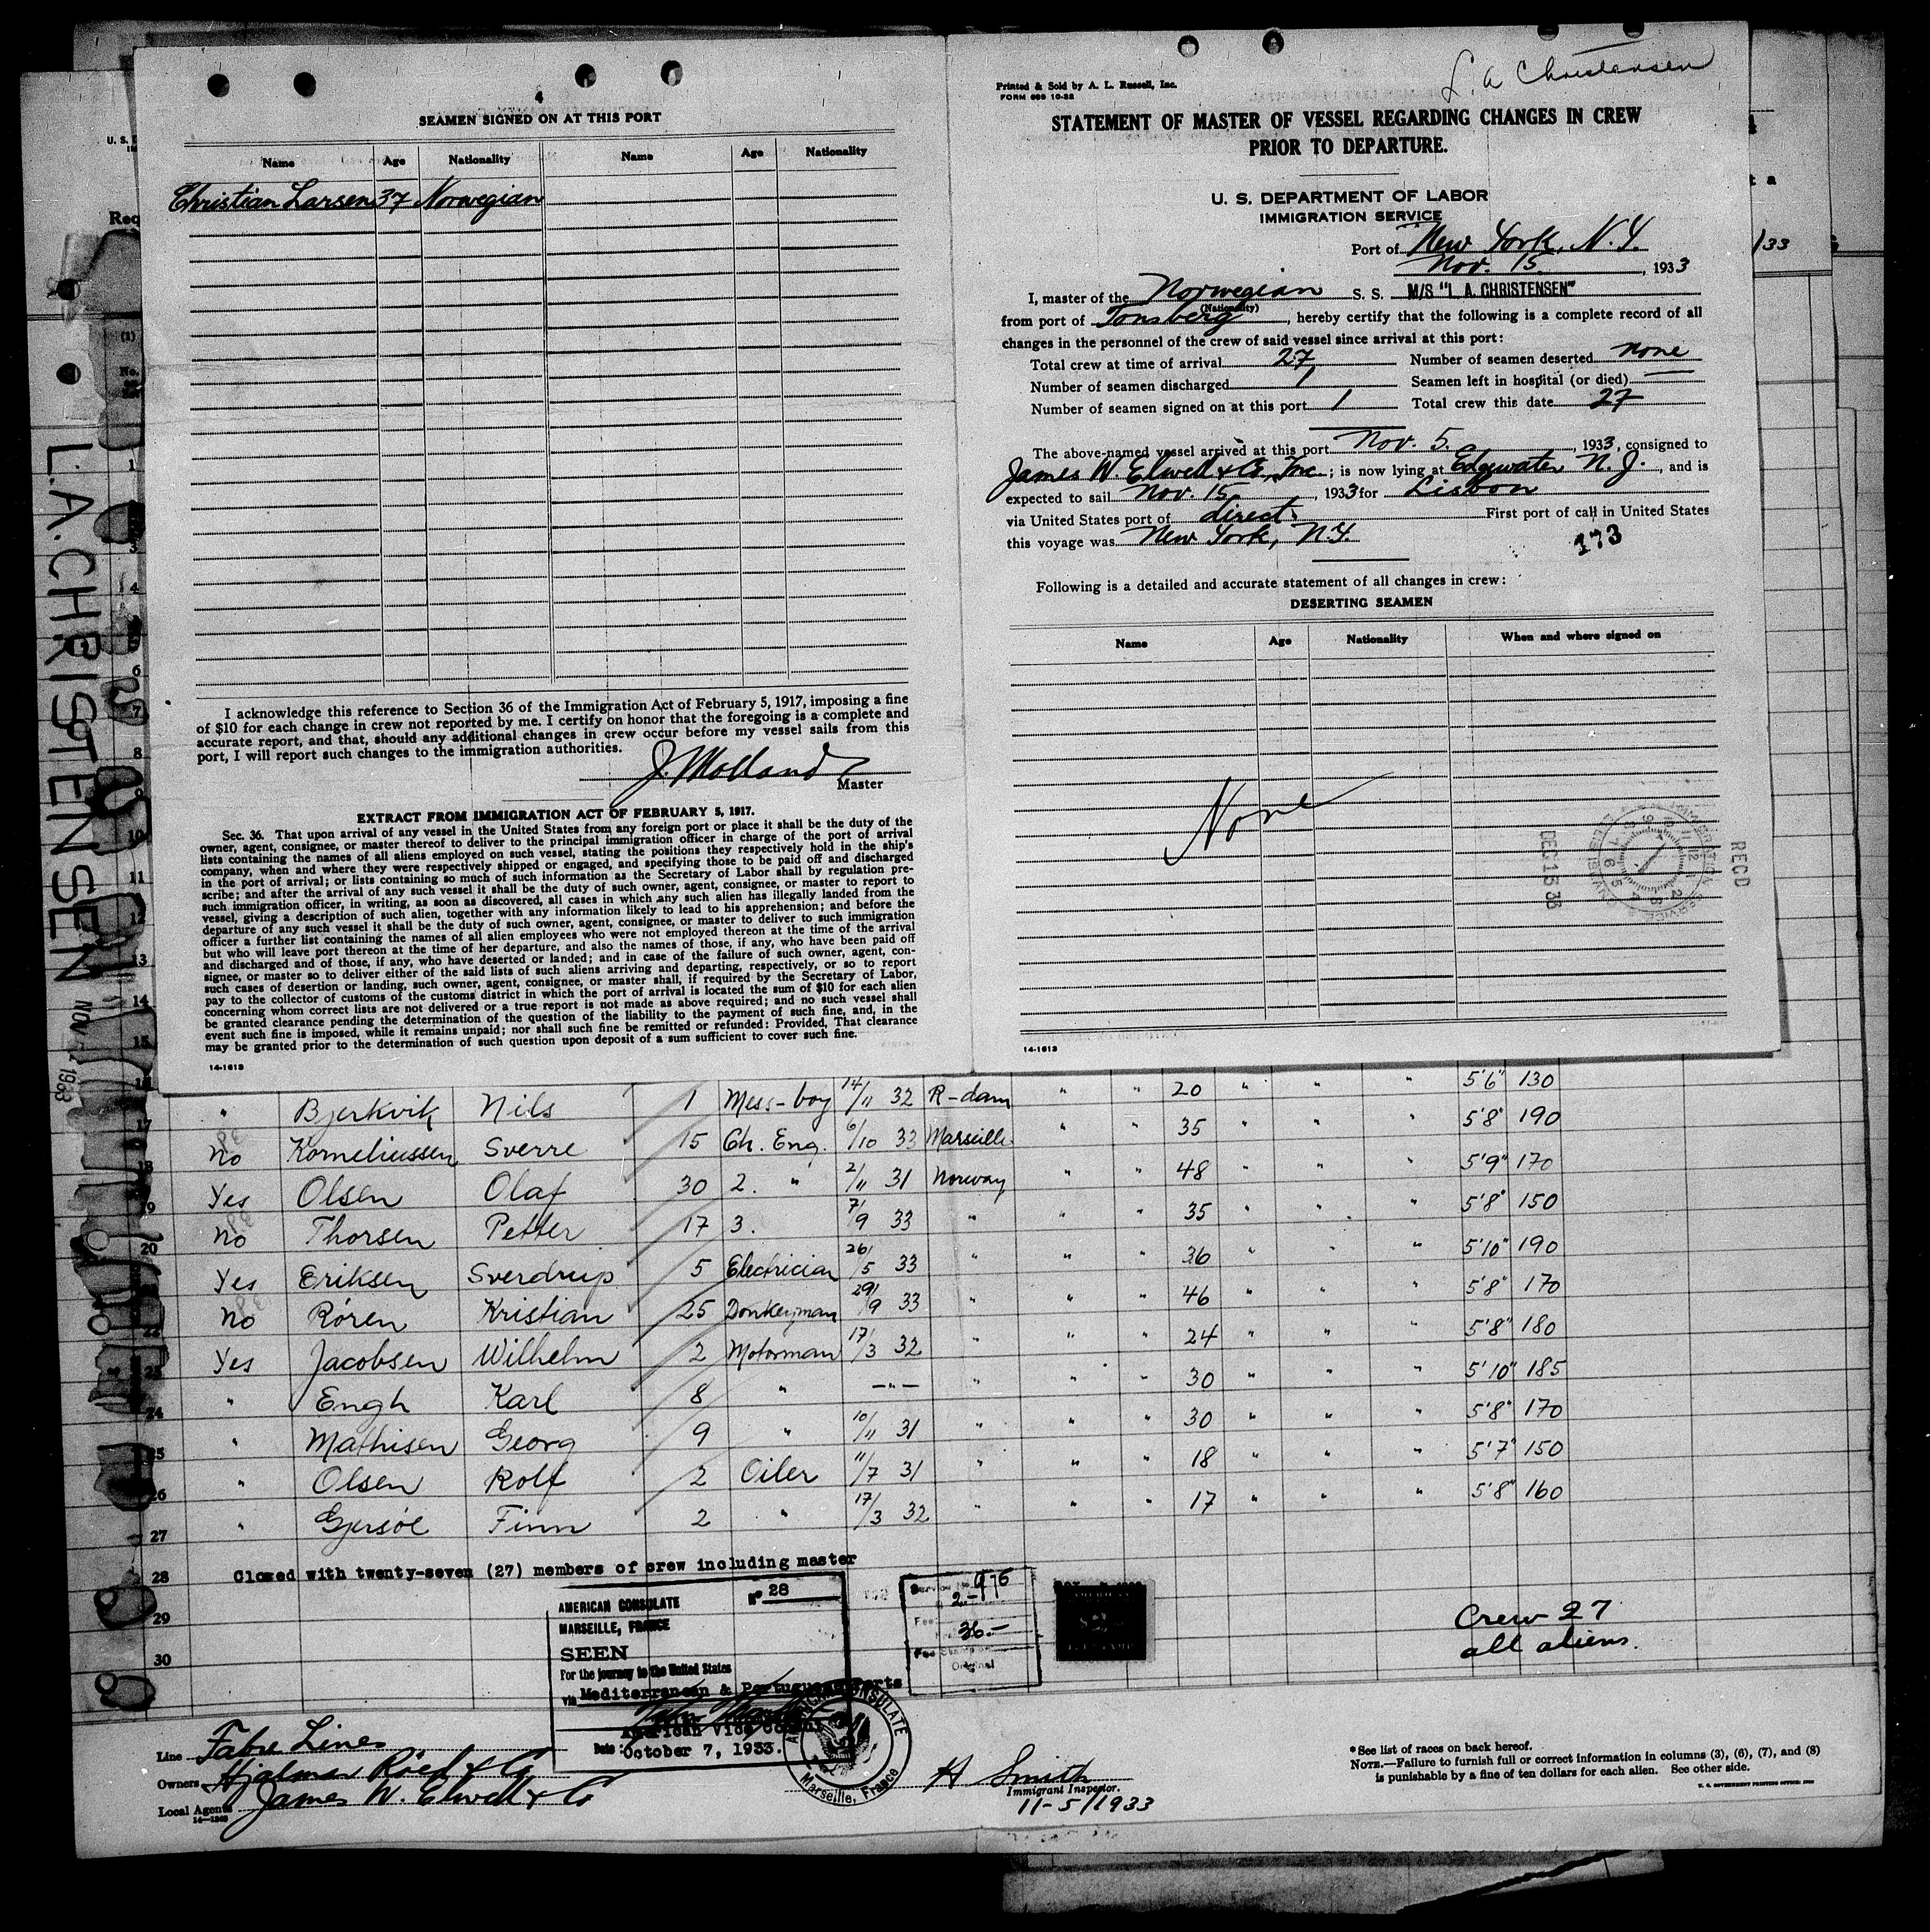 4
SEAMEN SIGNED ON AT THIS PORT
Name Age Nationality Name Age Nationality
Christian Larsen 37 Norwegian
I acknowledge this reference to Section 36 of the Immigration Act of February 5, 1917, imposing a fine
of $10 for each change in crew not reported by me. I certify on honor that the foregoing is a complete and
accurate report, and that, should any additional changes in crew occur before my vessel sails from this
port, I will report such changes to the immigration authorities.
Master
EXTRACT FROM IMMIGRATION ACT OF FEBRUARY 5, 1917.
Sec. 36. That upon arrival of any vessel in the United States from any foreign port or place it shall be the duty of the
owner, agent, consignee, or master thereof to deliver to the principal immigration officer in charge of the port of arrival
lists containing the names of all aliens employed on such vessel, stating the positions they respectively hold in the ship's
company, when and where they were respectively shipped or engaged, and specifying those to be paid off and discharged
in the port of arrival; or lists containing so much of such information as the Secretary of Labor shall by regulation pre-
scribe; and after the arrival of any such vessel it shall be the duty of such owner, agent, consignee, or master to report to
such immigration officer, in writing, as soon as discovered, all cases in which any such alien has illegally landed from the
vessel, giving a description of such alien, together with any information likely to lead to his apprehension; and before the
departure of any such vessel it shall be the duty of such owner, agent, consignee, or master to deliver to such immigration
officer a further list containing the names of all alien employees who were not employed thereon at the time of the arrival
but who will leave port thereon at the time of her departure, and also the names of those, if any, who have been paid off
and discharged and of those, if any, who have deserted or landed; and in case of the failure of such owner, agent, con-
signee, or master so to deliver either of the said lists of such aliens arriving and departing, respectively, or so to report
such cases of desertion or landing, such owner, agent, consignee, or master shall, if required by the Secretary of Labor,
pay to the collector of customs of the customs district in which the port of arrival is located the sum of $10 for each alien
concerning whom correct lists are not delivered or a true report is not made as above required; and no such vessel shall
be granted clearance pending the determination of the question of the liability to the payment of such fine, and, in the
event such fine is imposed, while it remains unpaid; nor shall such fine be remitted or refunded: Provided, That clearance
may be granted prior to the determination of such question upon deposit of a sum sufficient to cover such fine.
14-1613
L. A. Christensen
Printed & Sold by A. L. Russell, Inc.
FORM 689 10-32
STATEMENT OF MASTER OF VESSEL REGARDING CHANGES IN CREW
PRIOR TO DEPARTURE.
U. S. DEPARTMENT OF LABOR
IMMIGRATION SERVICE
Port of New York, N.Y.
Nov. 15, 1933
I, master of the Norwegian S. S. M/S "L. A. CHRISTENSEN"
(Nationality)
from port of Tonsberg, hereby certify that the following is a complete record of all
changes in the personnel of the crew of said vessel since arrival at this port:
Total crew at time of arrival 27 Number of seamen deserted none
Number of seamen discharged 1 Seamen left in hospital (or died) —
Number of seamen signed on at this port 1 Total crew this date 27
The above-named vessel arrived at this port Nov. 5, 1933, consigned to
James W. Elwell & Co., Inc.; is now lying at Edgewater N. J., and is
expected to sail Nov. 15, 1933 for Lisbon
via United States port of direct. First port of call in United States
this voyage was New York, N.Y.
173
Following is a detailed and accurate statement of all changes in crew:
DESERTING SEAMEN
Name Age Nationality When and where signed on
None
RECD
DEC 15 33
14-1613
L.A. CHRISTENSEN
NOV 1933
" Bjerkvik Nils 1 Mess-boy 14/11 32 R-dam " " 20 " " " 5'6" 130
17 No Korneliussen Sverre 15 Ch. Eng. 6/10 33 Marseille " " 35 " " " 5'8" 190
18 Yes Olsen Olaf 30 2. " 2/11 31 Norway " " 48 " " " 5'9" 170
19 No Thorsen Petter 17 3. 7/9 33 " " " 35 " " " 5'8" 150
20 Yes Eriksen Sverdrup 5 Electrician 26/5 33 " " " 36 " " " 5'10" 190
No Rören Kristian 25 Donkeyman 29/9 33 " " " 46 " " " 5'8" 170
22 Yes Jacobsen Wilhelm 2 Motorman 17/3 32 " " " 24 " " " 5'8" 180
23 " Engh Karl 8 " —"— " " " 30 " " " 5'10" 185
24 " Mathisen Georg 9 " 10/11 31 " " " 30 " " " 5'8" 170
25 " Olsen Rolf 2 Oiler 11/7 31 " " " 18 " " " 5'7" 150
26 " Finn 2 " 17/3 32 " " " 17 " " " 5'8" 160
27
28 Closed with twenty-seven (27) members of crew including master
29
30
AMERICAN CONSULATE
No 28
MARSEILLE, FRANCE
SEEN
For the journey to the United States
via Mediterranean & Portuguese Ports
American Vice Consul
Date: October 7, 1933.
AMERICAN CONSULATE
Marseille, France
Service No. 976
2.-
Fee 36.-
Fee Stamp on
Original
Crew 27
all aliens.
Line Fabre Lines
Owners Hjalmar Röed & Co
Local Agents James W. Elwell & Co
H Smith
Immigrant Inspector.
11-5/1933
*See list of races on back hereof.
NOTE.—Failure to furnish full or correct information in columns (3), (6), (7), and (8)
is punishable by a fine of ten dollars for each alien. See other side.
U. S. GOVERNMENT PRINTING OFFICE